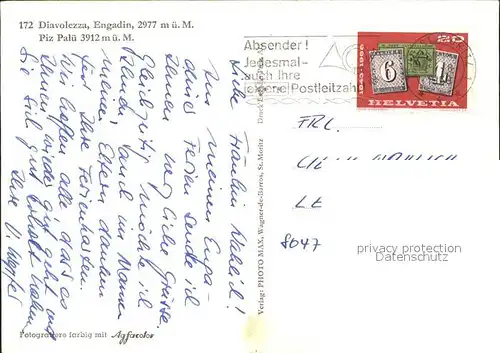 172 Diavolezza, Engadin, 2977 m ü. M.
Piz Palü 3912 m ü. M.
Liebe Fräulein
Aus meinen Enga-
diner Ferien sende ich
Ihnen herzliche Grüsse.
Gleichzeitig möchte ich
Ihnen, auch im Namen
meiner Eltern danken
für Ihre Ferienkarten.
Wir hoffen alle, dass es
Ihnen wieder gut geht und
Sie sich gut erholt haben.
Ihre
Fotografiere farbig mit Agfacolor
Verlag: PHOTO MAX, Wagner-de-Barros, St. Moritz
Absender!
Jedesmal-
auch Ihre
eigene Postleitzahl
1843-1968
20
6
HELVETIA
FRL.
8047
privacy protection
Datenschutz